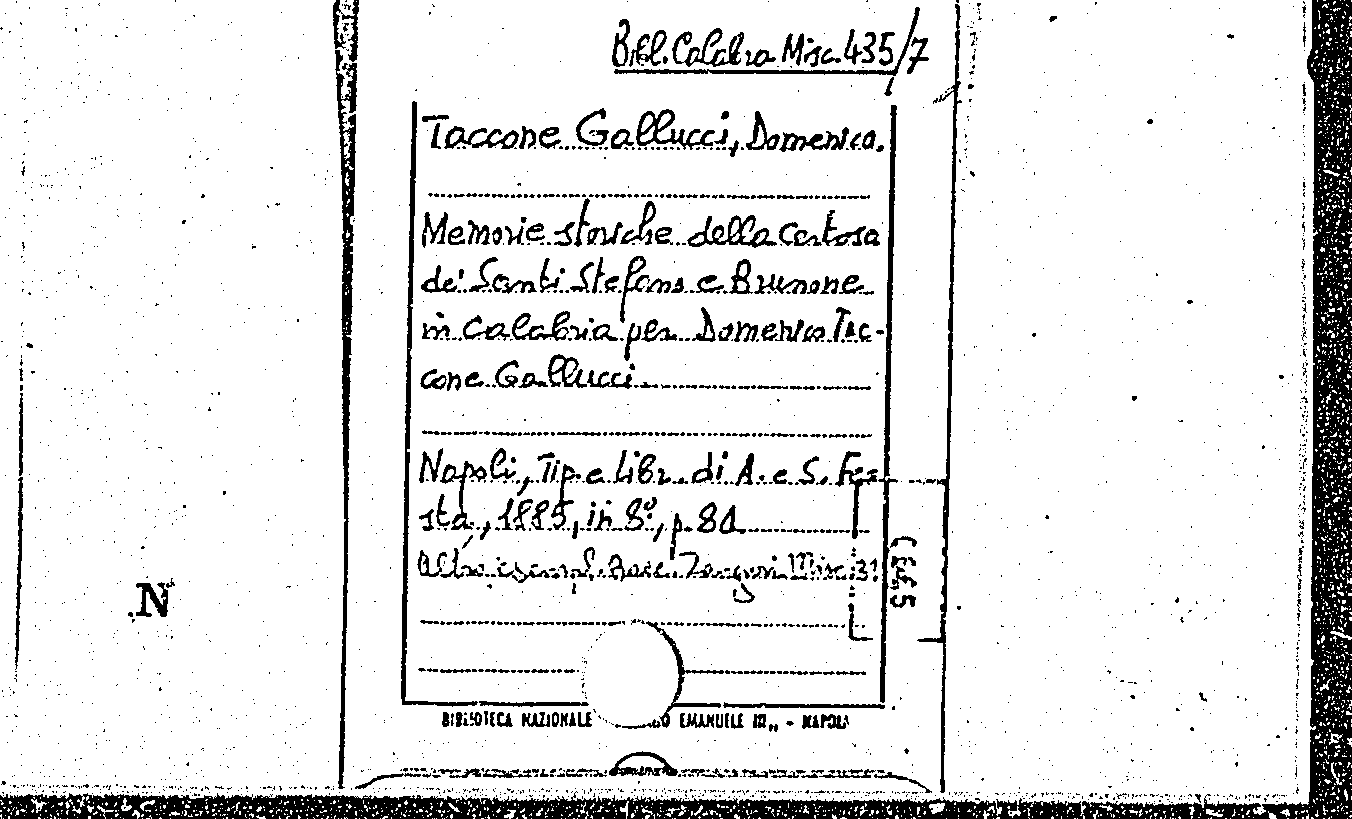 Bibl. Calabra Misc. 435/7
Taccone Gallucci, Domenico.
Memorie storiche della Certosa
de' Santi Stefano e Brunone
in Calabria per Domenico Tac-
cone Gallucci.
Napoli, Tip. e Libr. di A. e S. Fe-
sta, 1885, in 8°, p. 81
Altro esempl. Racc. Zangari Misc. 31
N
BIBLIOTECA NAZIONALE EMANUELE III„ - NAPOLI